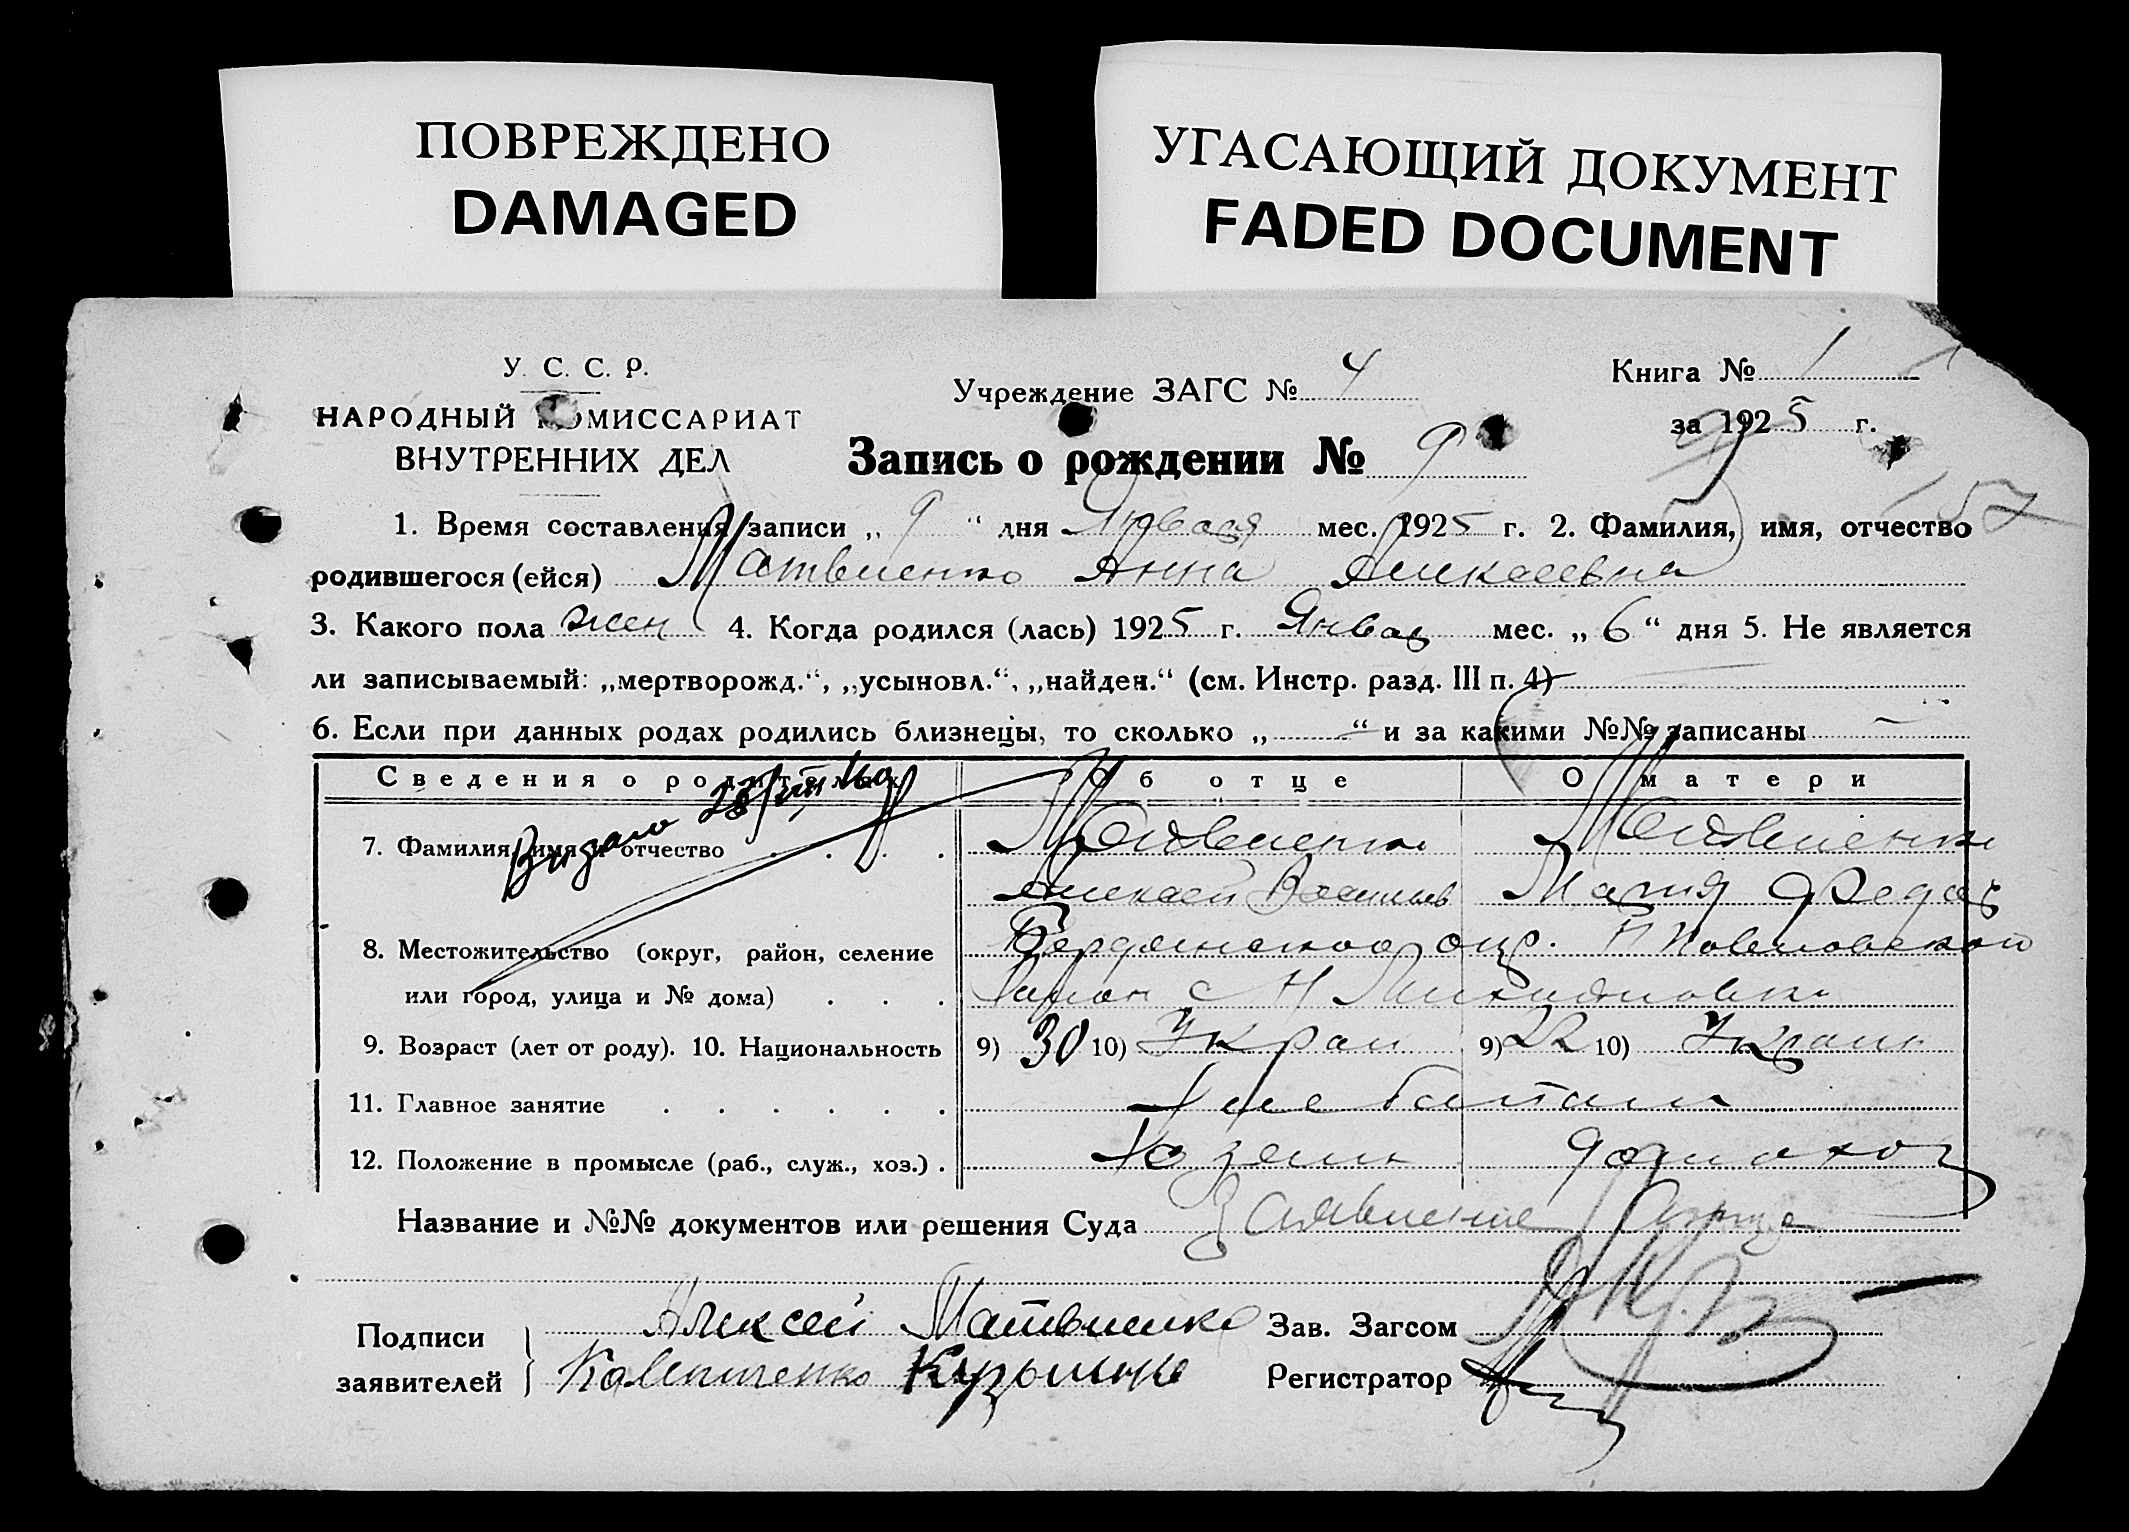 ПОВРЕЖДЕНО
DAMAGED
УГАСАЮЩИЙ ДОКУМЕНТ
FADED DOCUMENT
У. С. С. Р.
НАРОДНЫЙ КОМИССАРИАТ
ВНУТРЕННИХ ДЕЛ
Учреждение ЗАГС № 4
Книга № 1
за 1925 г.
Запись о рождении № 9
1. Время составления записи „ 9 “ дня Января мес. 1925 г. 2. Фамилия, имя, отчество
родившегося (ейся) Матвиенко Анна Алексеевна
3. Какого пола жен 4. Когда родился (лась) 1925 г. Январ мес. „ 6 “ дня 5. Не является
ли записываемый: „мертворожд.“, „усыновл.“, „найден.“ (см. Инстр. разд. III п. 4)
6. Если при данных родах родились близнецы, то сколько „ — “ и за какими №№ записаны —
Сведения о родителях Об отце О матери
7. Фамилия, имя и отчество Матвиенко Матвиенко
Алексей Васильев Мария Федор
8. Местожительство (округ, район, селение Бердянской окр.
или город, улица и № дома) Район с Н
9. Возраст (лет от роду). 10. Национальность 9) 30 10) Украи 9) 22 10) Украин
11. Главное занятие
12. Положение в промысле (раб., служ., хоз.) Хозяин домахоз
Название и №№ документов или решения Суда Заявление отца
Подписи заявителей Алексей Матвиенко
Кузьменко
Зав. Загсом
Регистратор